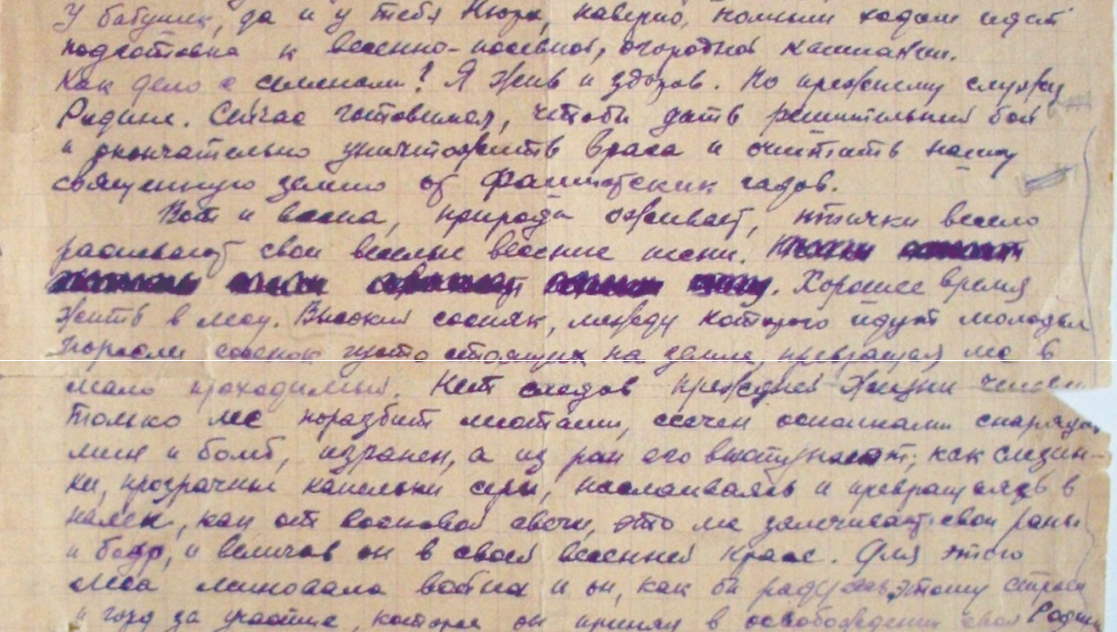 У бабушек, да и у тебя Нюра, наверно, полным ходом идёт
подготовка к весенне-посевной, огородной кампании.
Как дело с семенами? Я жив и здоров. По прежнему служу
Родине. Сейчас готовимся, чтобы дать решительный бой
и окончательно уничтожить врага и очистить нашу
священную землю от фашистских гадов.
Вот и весна, природа оживает, птички весело
распевают свои веселые весенние песни.
Хорошее время
жить в лесу. Высокий сосняк, между которого идут молодые
поросли сосенок густо стоящих на земле, превращая лес в
мало проходимый. Нет следов прежней жизни
Только лес поразбит местами, иссечен осколками
мин и бомб, изранен, а из ран его выступают, как слезин-
ки, прозрачные капельки серы, наслаиваясь и превращаясь в
, как от восковой свечи, это лес залечивает свои раны
и бодр, и величав он в своей весенней красе. Для этого
леса миновала война и он, как бы радуясь этому
и горд за участие, которое он принял в освобождении своей